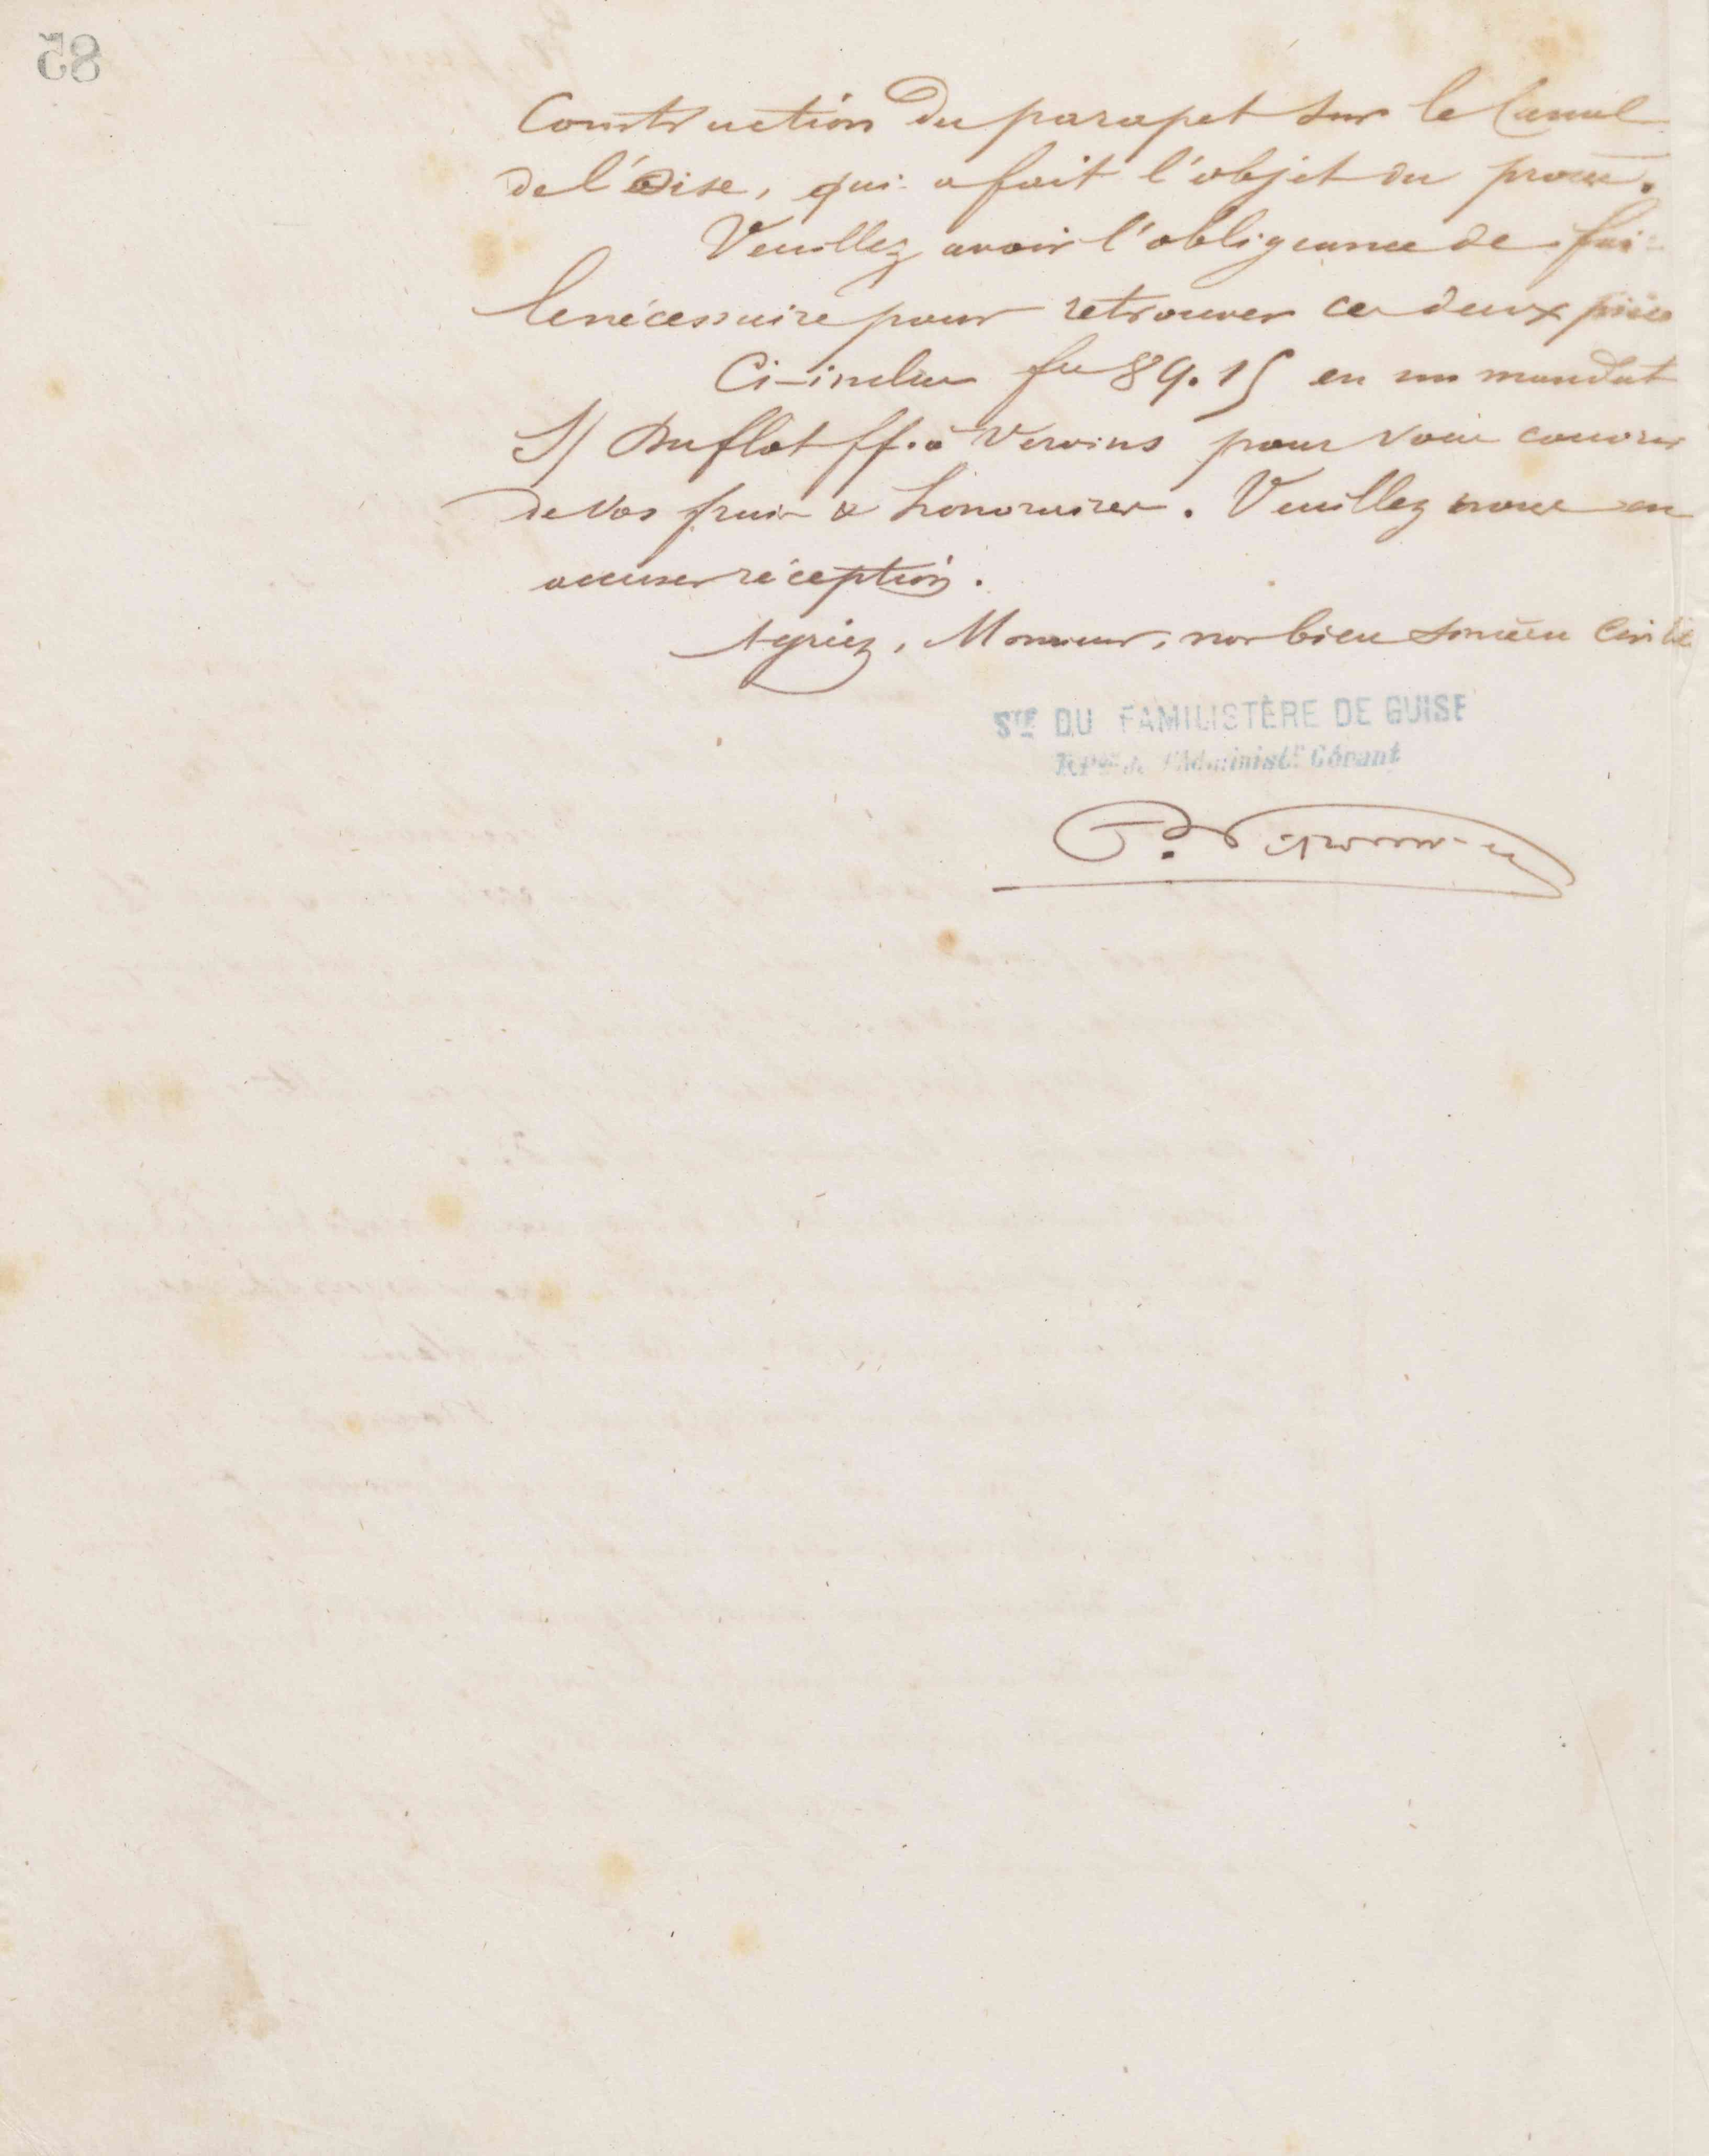 85
Construction du parapet sur le Canal
de l'Oise, qui a fait l'objet du procès.
Veuillez avoir l'obligeance de fai
le nécessaire pour retrouver ces deux pièces
Ci-inclus fcs 89.15 en un mandat
S/ Duflot ff. à Vervins pour vous couvrir
de vos frais & honoraires. Veuillez nous en
accuser réception.
Agréez, Monsieur, nos bien sincères Civilit
STE DU FAMILISTÈRE DE GUISE
l'Administr Gérant